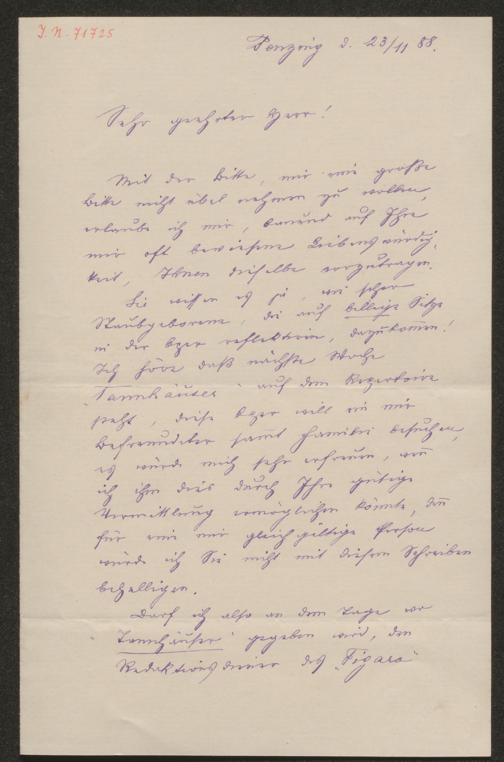 J.N. 71725
Penzing d. 23/11 88.
Sehr geehrter Herr!
Mit der Bitte, mir eine große
Bitte nicht übel nehmen zu wollen,
erlaube ich mir, bauend auf Ihre
mir oft bewiesene Liebenswürdig-
keit, Ihnen dieselbe vorzutragen.
Sie wissen es ja, wie schwer
Staubgeborene, die auf billige Sitze
in der Oper reflektiren, dazukommen!
Ich höre daß nächste Woche
"Tannhäuser" auf dem Repertoire
steht, diese Oper will ein mir
Befreundeter sammt Familie besuchen,
es würde mich sehr erfreuen, wenn
ich ihm dies durch Ihre gütige
Vermittlung ermöglichen könnte, denn
für eine mir gleichgiltige Person
würde ich Sie nicht mit diesem Schreiben
behelligen.
Darf ich also an dem Tage wo
"Tannhäuser" gegeben wird, den
Redaktionsdiener des "Figaro"